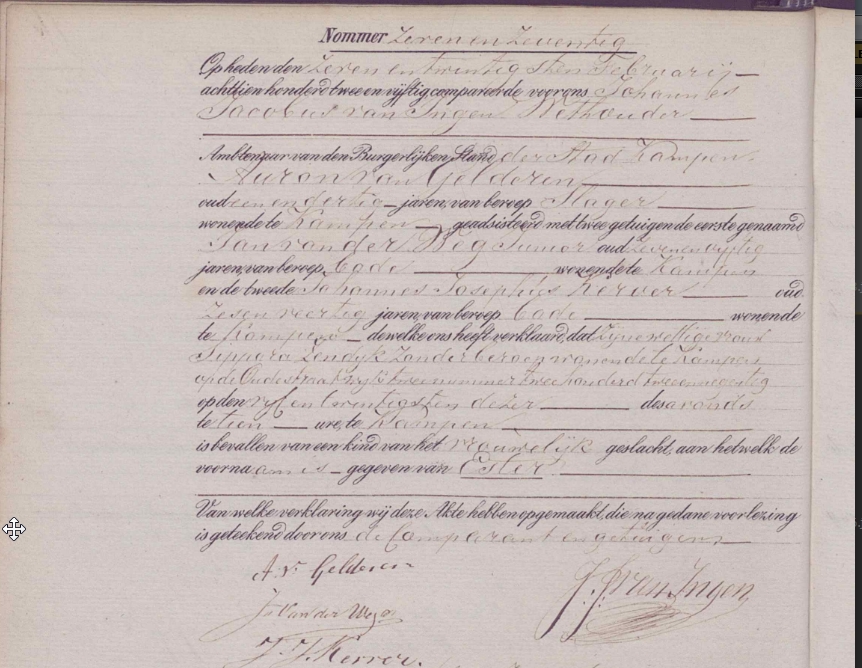 Nommer Zeven en Zeventig
Op heden den zeven en twintigsten Februarij
achttien honderd twee en vijftig compareerde voor ons Johannes
Jacobus van Ingen Wethouder
Ambtenaar van den Burgerlijken Stand der Stad Kampen.
Aäron van Gelderen
oud een en dertig jaren, van beroep Slager
wonende te Kampen geadsisteerd met twee getuigen de eerste genaamd
Jan van der Weg Junior oud zeven en vijftig
jaren, van beroep bode wonende te Kampen
en de tweede Johannes Josephus Kerver oud
zes en veertig jaren, van beroep bode wonende
te Kampen dewelke ons heeft verklaard, dat zijne wettige vrouw
Sippora Zendijk Zonder beroep wonende te Kampen
op de Oudestraat wijk twee nummer twee honderd twee en
op den vijf en twintigsten dezer des avonds
te tien ure, te Kampen
is bevallen van een kind van het vrouwelijk geslacht, aan hetwelk de
voornaam is gegeven van Ester
Van welke verklaring wij deze Akte hebben opgemaakt, die na gedane voorlezing
is geteekend door ons, de Comparant en getuigens
A. v. Gelderen
J. J. van Ingen
J. van der Weg
J. J. Kerver.